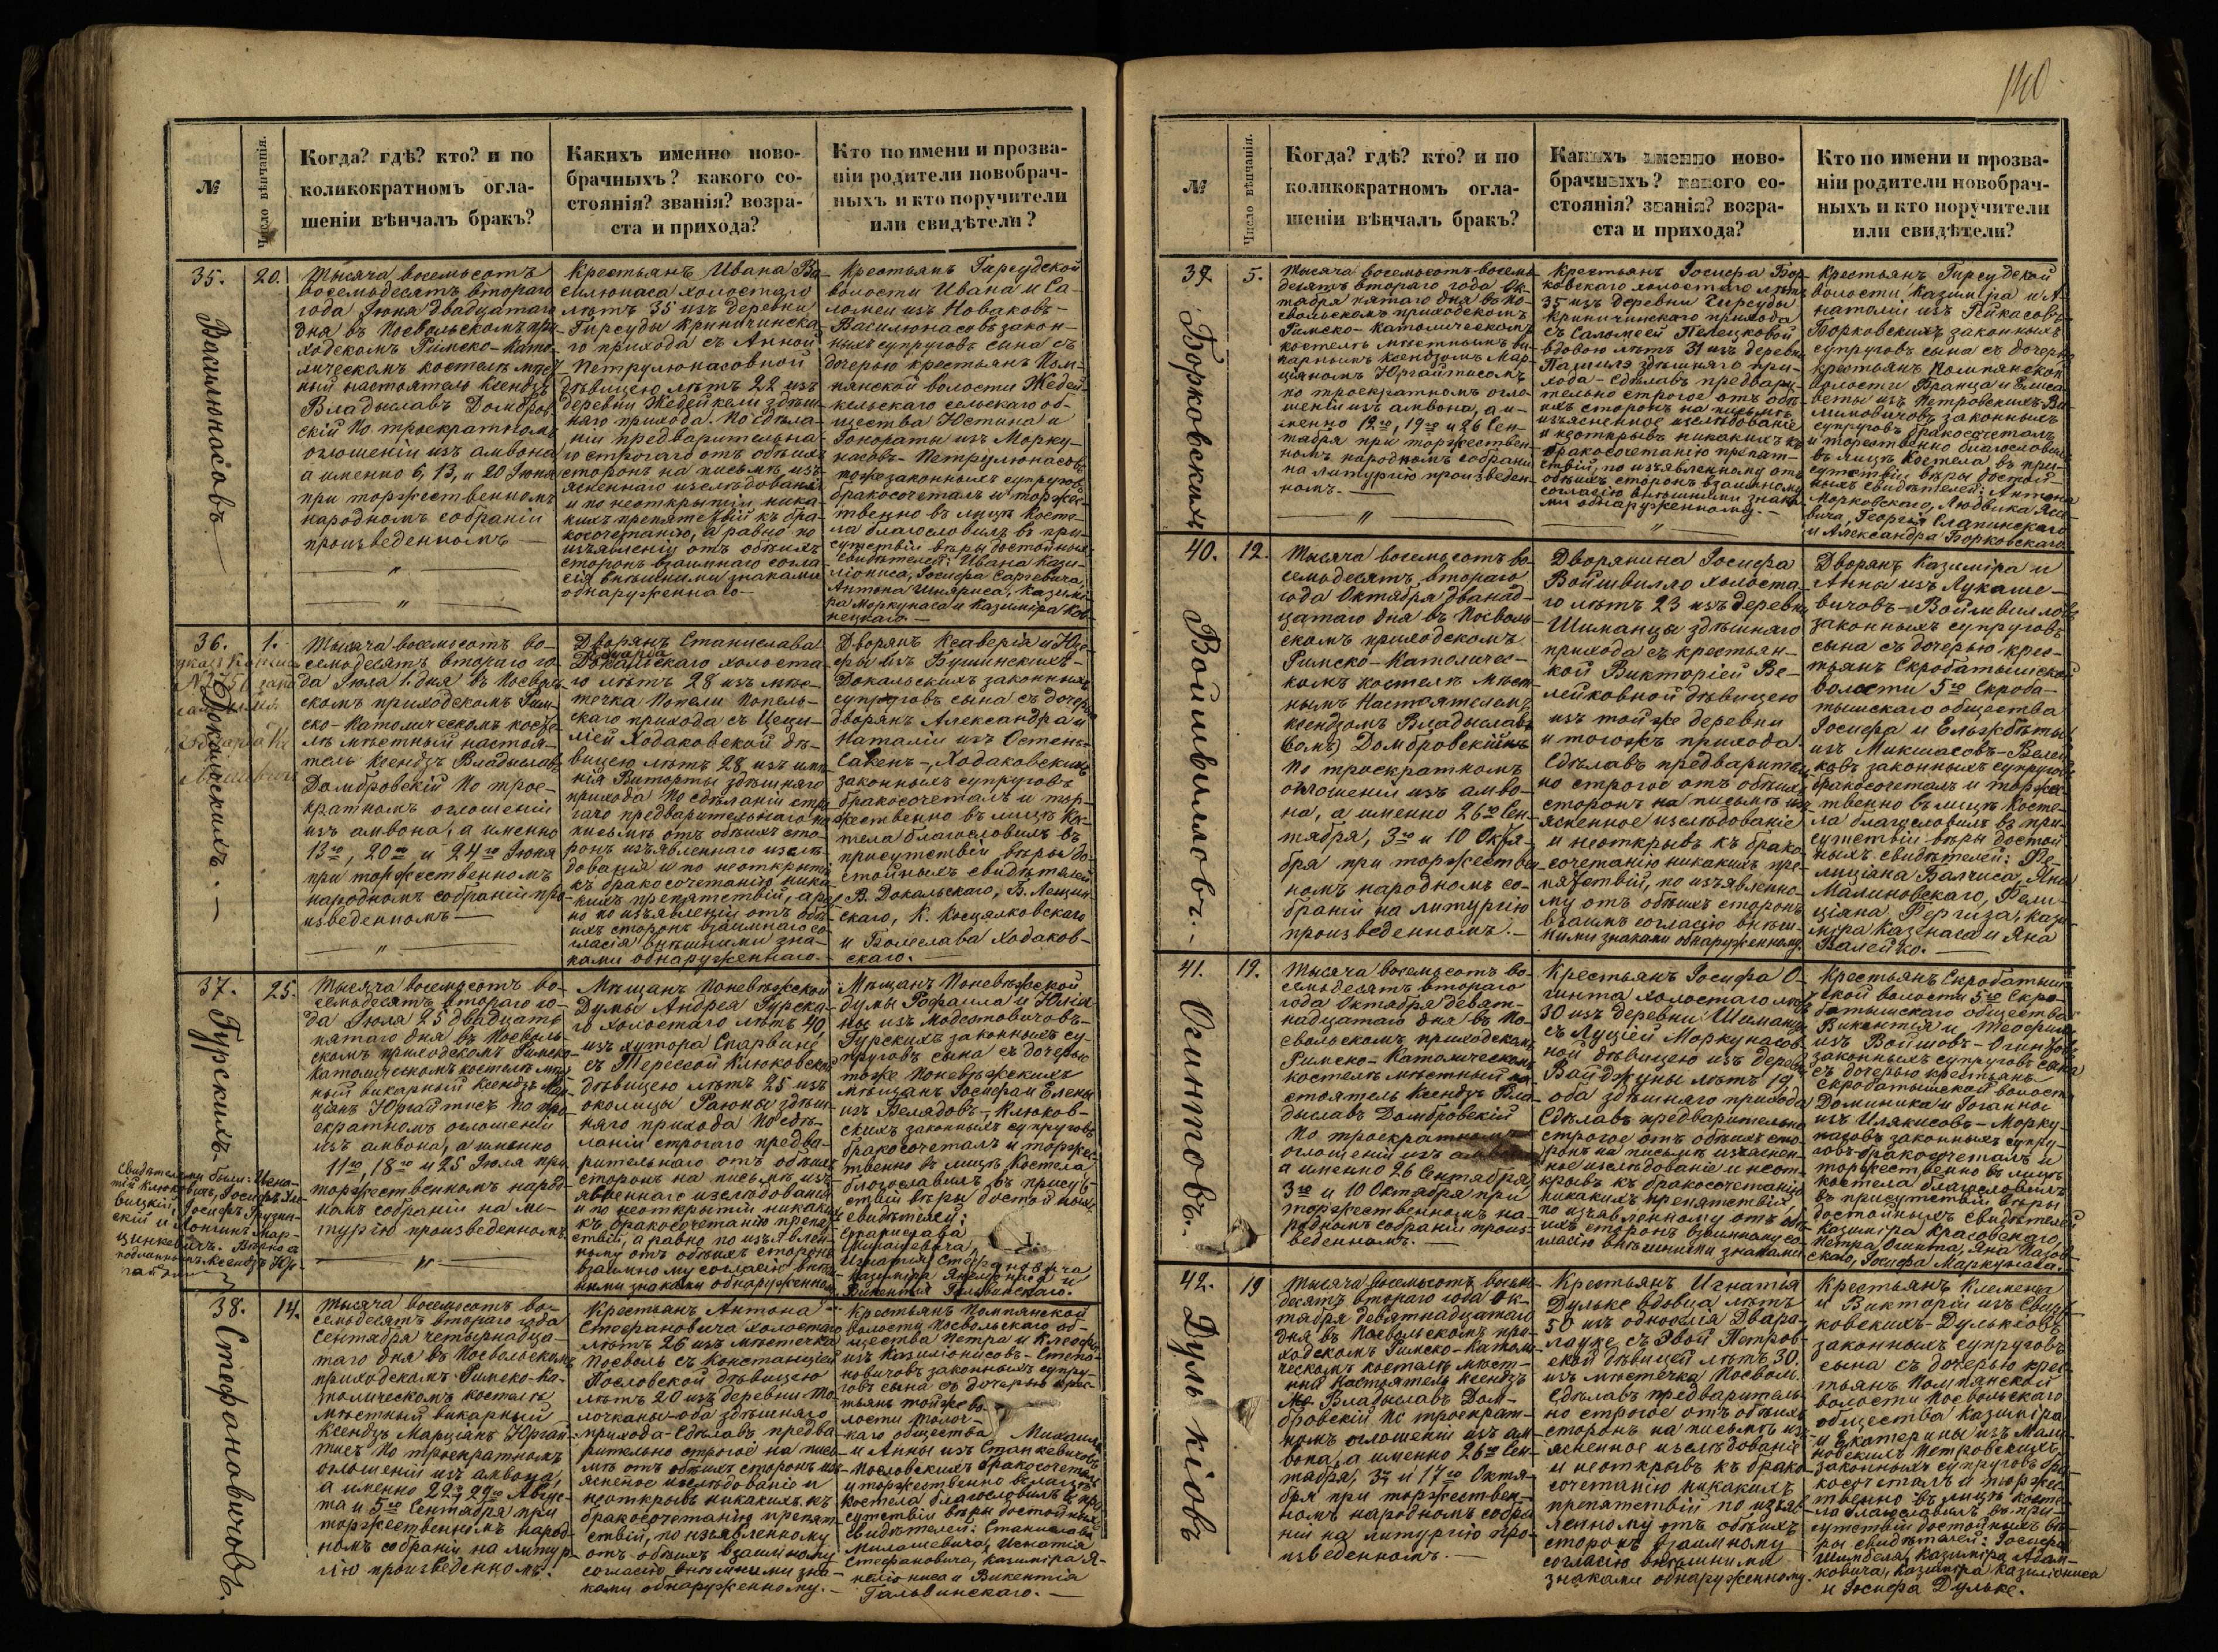 140
№
Число вѣнчанія.
Когда? гдѣ? кто? и по
коликократномъ огла-
шеніи вѣнчалъ бракъ?
Какихъ именно ново-
брачныхъ? какого со-
стоянія? званія? возра-
ста и прихода?
Кто по имени и прозва-
ніи родители новобрач-
ныхъ и кто поручители
или свидѣтели?
35.
Василюнасовъ
20.
Тысяча восемьсотъ
восемьдесятъ втораго
года Іюня двадцатаго
дня въ Посвольскомъ при-
ходскомъ Римско-Като-
лическомъ костелѣ мѣст-
ный настоятель Ксендзъ
Владыславъ Домбров-
скій по троекратномъ
оглошеніи изъ амвона
а именно 6, 13, и 20 Іюня
при торжественномъ
народномъ собраніи
произведенномъ —
Крестьянъ Ивана Ва-
силюнаса холостаго
лѣтъ 35 изъ деревни
Гирсуды Криничинска-
го прихода съ Анной
Петрулюнасовной
дѣвицею лѣтъ 22 изъ
деревни Жедейкели здѣш-
няго прихода. По сдѣла-
ніи предварительна-
го строгаго отъ обѣихъ
сторонъ на письмѣ изъ-
ясненнаго изслѣдованія
и по неоткрытіи ника-
кихъ препятствій къ бра-
косочетанію, а равно по
изъявленію отъ обѣихъ
сторонъ взаимнаго согла-
сія внѣшними знаками
обнаруженнаго —
Крестьянъ Гирсудской
волости Ивана и Са-
ломеи изъ Новаковъ-
Василюнасовъ закон-
ныхъ супруговъ сына съ
дочерью крестьянъ Пом-
пянской волости Жедей-
кельскаго сельскаго об-
щества Юстина и
Гонораты изъ Морку-
насовъ-Петрулюнасовъ
тоже законныхъ супруговъ
бракосочеталъ и торжес-
твенно въ лицѣ Косте-
ла благословилъ въ при-
сутствіи вѣры достойныхъ
свидѣтелей: Ивана Кази-
ліониса, Іосифа Саргевича,
Антона Шкляриса, Казимі-
ра Моркунаса и Казиміра Ков-
нецкаго. —
36.
Докальскихъ. —
1.
Тысяча восемьсотъ во-
семьдесятъ втораго го-
да Іюля 1. дня въ Посволь-
скомъ приходскомъ Рим-
ско-Католическомъ косте-
лѣ мѣстный настоя-
тель Ксендзъ Владыславъ
Домбровскій по трое-
кратномъ оглошеніи
изъ амвона, а именно
13го, 20го и 24го Іюня
при торжественномъ
народномъ собраніи про-
изведенномъ —
Дворянъ Станислава
Эдуарда
Докальскаго холоста-
го лѣтъ 28 изъ мѣс-
течка Попели Попель-
скаго прихода съ Цеци-
ліей Ходаковской дѣ-
вицею лѣтъ 28 изъ имѣ-
нія Виторты здѣшняго
прихода По сдѣланіи стро-
гаго предварительнаго на
письмѣ отъ обѣихъ сто-
ронъ изъявленнаго изслѣ-
дованія и по неоткрытіи
къ бракосочетанію ника-
кихъ препятствій, а рав-
но по изъявленіи отъ обѣ-
ихъ сторонъ взаимнаго со-
гласія внѣшними зна-
ками обнаруженнаго. —
Дворянъ Ксаверія и Юзе-
фы изъ Бушинскихъ-
Докальскихъ законныхъ
супруговъ сына съ дочерью
дворянъ Александра и
Наталіи изъ Остень-
Сакенъ-Ходаковскихъ
законныхъ супруговъ
бракосочеталъ и тор-
жественно въ лицѣ Ко-
стела благословилъ въ
присутствіи вѣры до-
стойныхъ свидѣтелей
В. Докальскаго, В. Лещин-
скаго, К. Косцялковскаго
и Болеслава Ходаков-
скаго. —
37.
Гурскихъ.
Свидѣтелями были: Игна-
тій Клюковичъ, Іосифъ
Іосифъ Грузин-
скій и Лонгинъ Мар-
цинкевичъ. Вѣрно съ
подлиннымъ Ксендзъ Юр-
гайтисъ
25.
Тысяча восемьсотъ во-
семьдесятъ втораго го-
да Іюля 25 двадцать
пятаго дня въ Посволь-
скомъ приходскомъ Римско-
Католическомъ костелѣ мѣст-
ный викарный Ксендзъ Мар-
ціанъ Юргайтисъ по тро-
екратномъ оглошеніи
изъ амвона, а именно
11го, 18го и 25 Іюля при
торжественномъ народ-
номъ собраніи на ли-
тургію произведенномъ.
Мѣщанъ Поневѣжской
Думы Андрея Гурска-
го холостаго лѣтъ 40,
изъ хутора Скарвине
съ Терессой Клюковской
дѣвицею лѣтъ 25 изъ
околицы Раюны здѣш-
няго прихода По сдѣ-
ланіи строгаго предва-
рительнаго отъ обѣихъ
сторонъ на письмѣ изъ-
явленнаго изслѣдованія
и по неоткрытіи никакихъ
къ бракосочетанію препят-
ствій, а равно по изъявлен-
ному отъ обѣихъ сторонъ
взаимному согласію внѣш-
ними знаками обнаруженному
Мѣщанъ Поневѣжской
думы Рафаила и Юліан-
ны изъ Модестовичовъ-
Гурскихъ законныхъ су-
пруговъ сына съ дочерью
тоже Поневѣжскихъ
мѣщанъ Іосифа и Елены
изъ Велядовъ-Клюков-
скихъ законныхъ супруговъ
бракосочеталъ и торжес-
твенно въ лицѣ костела
благословилъ въ присут-
ствіи вѣры достойныхъ
свидѣтелей:
Станислава
Милашевича,
Игнатія Стефановича
Казиміра Янеліониса и
Викентія Гальвинскаго.
38.
Стефановичовъ.
14.
Тысяча восемьсотъ во-
семьдесятъ втораго года
Сентября четырнадца-
таго дня въ Посвольскомъ
приходскомъ Римско-Ка-
толическомъ костелѣ
мѣстный викарный
Ксендзъ Марціанъ Юргай-
тисъ по троекратномъ
оглошеніи изъ амвона,
а именно 22го 29го Авгус-
та и 5го Сентября при
торжественномъ народ-
номъ собраніи на литур-
гію произведенномъ.
Крестьянъ Антона
Стефановича холостаго
лѣтъ 26 изъ мѣстечка
Посволь съ Констанціей
Пословской дѣвицею
лѣтъ 20 изъ деревни То-
лочканы-оба здѣшняго
прихода-Сдѣлавъ предва-
рительно строгое на пись-
мѣ отъ обѣихъ сторонъ изъ-
ясненое изслѣдованіе и
неоткрывъ никакихъ къ
бракосочетанію препят-
ствій, по изъявленному
отъ обѣихъ взаимному
согласію внѣшними зна-
ками обнаруженному. —
Крестьянъ Помпянской
волости Посвольскаго об-
щества Петра и Клеофы
изъ Казиліонисовъ-Стефа-
новичовъ законныхъ супру-
говъ сына съ дочерью крес-
тьянъ тойже во-
лости Толоч-
каго общества Михаила
и Анны изъ Станкевичовъ
Пословскихъ бракосочеталъ
и торжественно въ лицѣ
костела благословилъ въ при-
сутствіи вѣры достойныхъ
свидѣтелей: Станислава
Милашевича, Игнатія
Стефановича, Казиміра Я-
неліониса и Викентія
Гальвинскаго. —
№
Число вѣнчанія.
Когда? гдѣ? кто? и по
коликократномъ огла-
шеніи вѣнчалъ бракъ?
Какихъ именно ново-
брачныхъ? какого со-
стоянія? званія? возра-
ста и прихода?
Кто по имени и прозва-
ніи родители новобрач-
ныхъ и кто поручители
или свидѣтели?
39.
Борковскихъ
5.
Тысяча восемьсотъ восемь-
десятъ втораго года Ок-
тября пятаго дня въ По-
свольскомъ приходскомъ
Римско-Католическомъ
костелѣ мѣстнымъ ви-
карнымъ Ксендзомъ Мар-
ціаномъ Юргайтисомъ
по троекратномъ огло-
шеніи изъ амвона, а и-
менно 12го, 19го и 26 Сен-
тября при торжествен-
номъ народномъ собрани
на литургію произведен-
номъ. —
Крестьянъ Іосифа Бор-
ковскаго холостаго лѣтъ
35 изъ деревни Гирсуды
Криничинскаго прихода
съ Саломеей Пелецковой
вдовою лѣтъ 31 изъ деревни
Пашилэ здѣшняго при-
хода-Сдѣлавъ предвари-
тельно строгое отъ обѣ-
ихъ сторонъ на письмѣ
изъясненное изслѣдованіе
и неоткрывъ никакихъ къ
бракосочетанію препят-
ствій, по изъявленному отъ
обѣихъ сторонъ взаимному
согласію внѣшними знака-
ми обнаруженному. —
Крестьянъ Гирсудской
волости Казиміра и А-
наталіи изъ Рейкасовъ-
Борковскихъ законныхъ
супруговъ сына съ дочерью
крестьянъ Помпянской
волости Франца и Елиса-
веты изъ Петровскихъ-Ви-
лимовичовъ законныхъ
супруговъ бракосочеталъ
и торжественно благословилъ
въ лицѣ Костела въ при-
сутствіи вѣры достой-
ныхъ свидѣтелей: Антона
Морковскаго, Людвика Ясе-
вича, Георгія Слапинскаго
и Александра Борковскаго
40.
Войшвилловъ. —
12.
Тысяча восемьсотъ во-
семьдесятъ втораго
года Октября двѣнад-
цатаго дня въ Посволь-
скомъ приходскомъ
Римско-Католичес-
комъ костелѣ мѣст-
нымъ Настоятелемъ
ксендзомъ Владысла-
вомъ Домбровскимъ
по троекратномъ
оглошеніи изъ амво-
на, а именно 26го Сен-
тября, 3го и 10 Октя-
бря при торжествен-
номъ народномъ со-
браніи на литургію
произведенномъ. —
Дворянина Іосифа
Войшвилло холоста-
го лѣтъ 23 изъ деревни
Шиманцы здѣшняго
прихода съ крестьян-
кой Викторіей Ве-
лейковной дѣвицею
изъ той же деревни
и тогожъ прихода.
Сдѣлавъ предваритель-
но строгое отъ обѣихъ
сторонъ на письмѣ изъ-
ясненное изслѣдованіе
и неоткрывъ къ брако-
сочетанію никакихъ пре-
пятствій, по изъявленно-
му отъ обѣихъ сторонъ
взаимъ согласію внѣш-
ними знаками обнаруженному.
Дворянъ Казиміра и
Анны изъ Лукаше-
вичовъ-Войшвилловъ
законныхъ супруговъ
сына съ дочерью крес-
тьянъ Скробатышской
волости 5го Скроба-
тышскаго общества
Іосифа и Ельжбѣты
изъ Микшасовъ-Велей-
ковъ законныхъ супруговъ
бракосочеталъ и торжес-
твенно въ лицѣ Косте-
ла благословилъ въ при-
сутствіи вѣры достой-
ныхъ свидѣтелей: Фе-
лиціана Валчиса, Яна
Малиновскаго, Фели-
ціана Фергиза, Кази-
міра Казенаса и Яна
Валейко. —
41.
Огинтовъ.
19.
Тысяча восемьсотъ во-
семьдесятъ втораго
года Октября девят-
надцатаго дня въ По-
свольскомъ приходскомъ
Римско-Католическомъ
костелѣ мѣстный на-
стоятель Ксендзъ Вла-
дыславъ Домбровскій
по троекратномъ
оглошеніи изъ амвона
а именно 26 Сентября,
3го и 10 Октября при
торжественномъ на-
родномъ собраніи произ-
веденномъ. —
Крестьянъ Іосифа О-
гинта холостаго лѣтъ
30 изъ деревни Шиманцы
съ Луціей Моркунасов-
ной дѣвицею изъ деревни
Вайджуны лѣтъ 19
оба здѣшняго прихода
Сдѣлавъ предварительно
строгое отъ обѣихъ сто-
ронъ на письмѣ изъяснен-
ное изслѣдованіе и неот-
крывъ къ бракосочетанію
никакихъ препятствій,
по изъявленному отъ обѣ-
ихъ сторонъ взаимному со-
гласію внѣшними знаками
Крестьянъ Скробатыш-
ской волости 5го Скро-
батышскаго общества
Викентія и Теофили
изъ Войшовъ-Огинтовъ
законныхъ супруговъ сына
съ дочерью крестьянъ
Скробатышской волости
Доминика и Іоганны
изъ Илякисовъ-Морку-
насовъ законныхъ супру-
говъ бракосочеталъ и
торжественно въ лицѣ
костела благословилъ
въ присутствіи вѣры
достойныхъ свидѣтелей
Казиміра Красовскаго,
Петра Огинта, Яна Назов-
скаго, Іосифа Маркунаса.
42.
Дулькіовъ
19
Тысяча восемьсотъ восемь-
десятъ втораго года Ок-
тября девятнадцатаго
дня въ Посвольскомъ при-
ходскомъ Римско-Католи-
ческомъ костелѣ мѣст-
ный Настоятель Ксендзъ
Владыславъ Дом-
бровскій по троекрат-
номъ оглошеніи изъ ам-
вона, а именно 26го Сен-
тября, 3го и 17го Октя-
бря при торжествен-
номъ народномъ собра-
ніи на литургію про-
изведенномъ. —
Крестьянъ Игнатія
Дульке вдовца лѣтъ
50 изъ односелія Двара-
лауке съ Эвой Петров-
ской дѣвицей лѣтъ 30.
изъ мѣстечка Посволь.
Сдѣлавъ предваритель-
но строгое отъ обѣихъ
сторонъ на письмѣ изъ-
ясненное изслѣдованіе
и неоткрывъ къ брако-
сочетанію никакихъ
препятствій по изъяв-
ленному отъ обѣихъ
сторонъ взаимному
согласію внѣшними
знаками обнаруженному.
Крестьянъ Клеменса
и Викторіи изъ Свир-
ковскихъ-Дулькіовъ
законныхъ супруговъ
сына съ дочерью крес-
тьянъ Помпянской
волости Посвольскаго
общества Казиміра
и Екатерины изъ Мали-
новскихъ Петровскихъ
законныхъ супруговъ бра-
косочеталъ и торжес-
твенно въ лицѣ косте-
ла благословилъ въ при-
сутствіи достойныхъ вѣ-
ры свидѣтелей: Іосифа
Шимбеля, Казиміра Адам-
ковича, Казиміра Казиліониса
и Іосифа Дульке.